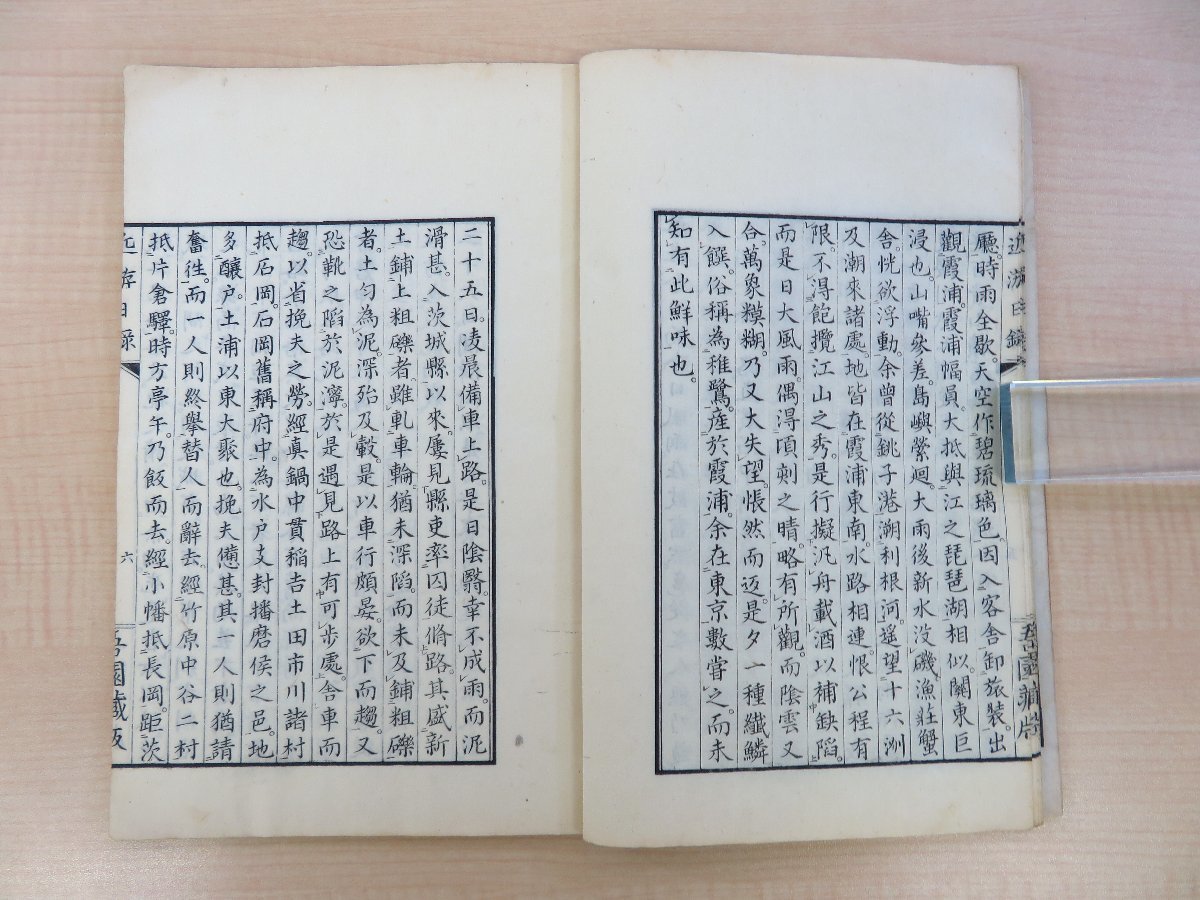 近游日錄
吾園藏版
廰。時雨全歇。天空作碧琉璃色。因入客舎卸旅裝出
觀霞浦。霞浦幅員。大抵與江之琵琶湖相似。關東巨
浸也。山嘴參差。島嶼縈廻。大雨後新水没磯。漁莊蟹
舎。恍欲浮動。余曾從銚子港溯利根河。瑶望十六洌
及潮來諸處。地皆在霞浦東南水路相連。恨公程有
限。不得飽攬江山之秀。是行擬汎舟載酒以補缺陷。
而是日大風雨。偶得頃刻之晴。略有所觀。而陰雲又
合。萬象糢糊。乃又大失望。悵然而返。是夕一種纖鱗
入饌。俗稱為稚鷺。産於霞浦。余在東京數嘗之。而未
知有此鮮味也。
二十五日。凌晨備車上路。是日陰翳。幸不成雨。而泥
滑甚。入茨城縣以來。屢見縣吏率囚徒脩路。其盛新
土鋪上粗礫者。雖軋車輪猶未深陷。而未及鋪粗礫
者。土匀為泥。深殆及轂。是以車行頗晏。欲下而趨。又
恐靴之陷於泥濘。於是遇見路上有可步處。舎車而
趨以省挽夫之勞。經眞鍋中貫稲吉土田市川諸村
抵石岡。石岡舊稱府中。為水戸支封播磨侯之邑。地
多釀戸。土浦以東大聚也。挽夫憊甚。其一人則猶請
奮徃。而一人則終擧替人而辭去。經竹原中谷二村
抵片倉驛。時方亭午。乃飯而去。經小幡抵長岡。距茨
近游日錄
六
吾園藏版